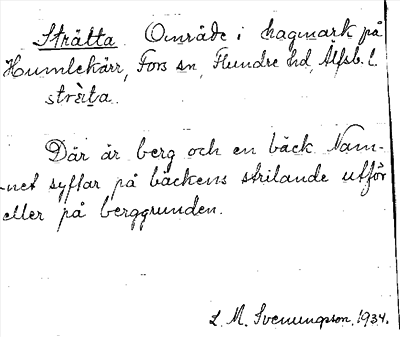 Strätta Område i hagmark på
Humlekärr, Fors sn, Flundre hd, Älfsb. l.
strèta.
Där är berg och en bäck Nam-
net syftar på bäckens strilande utför
eller på berggrunden.
L. M. Svenungsson, 1934.